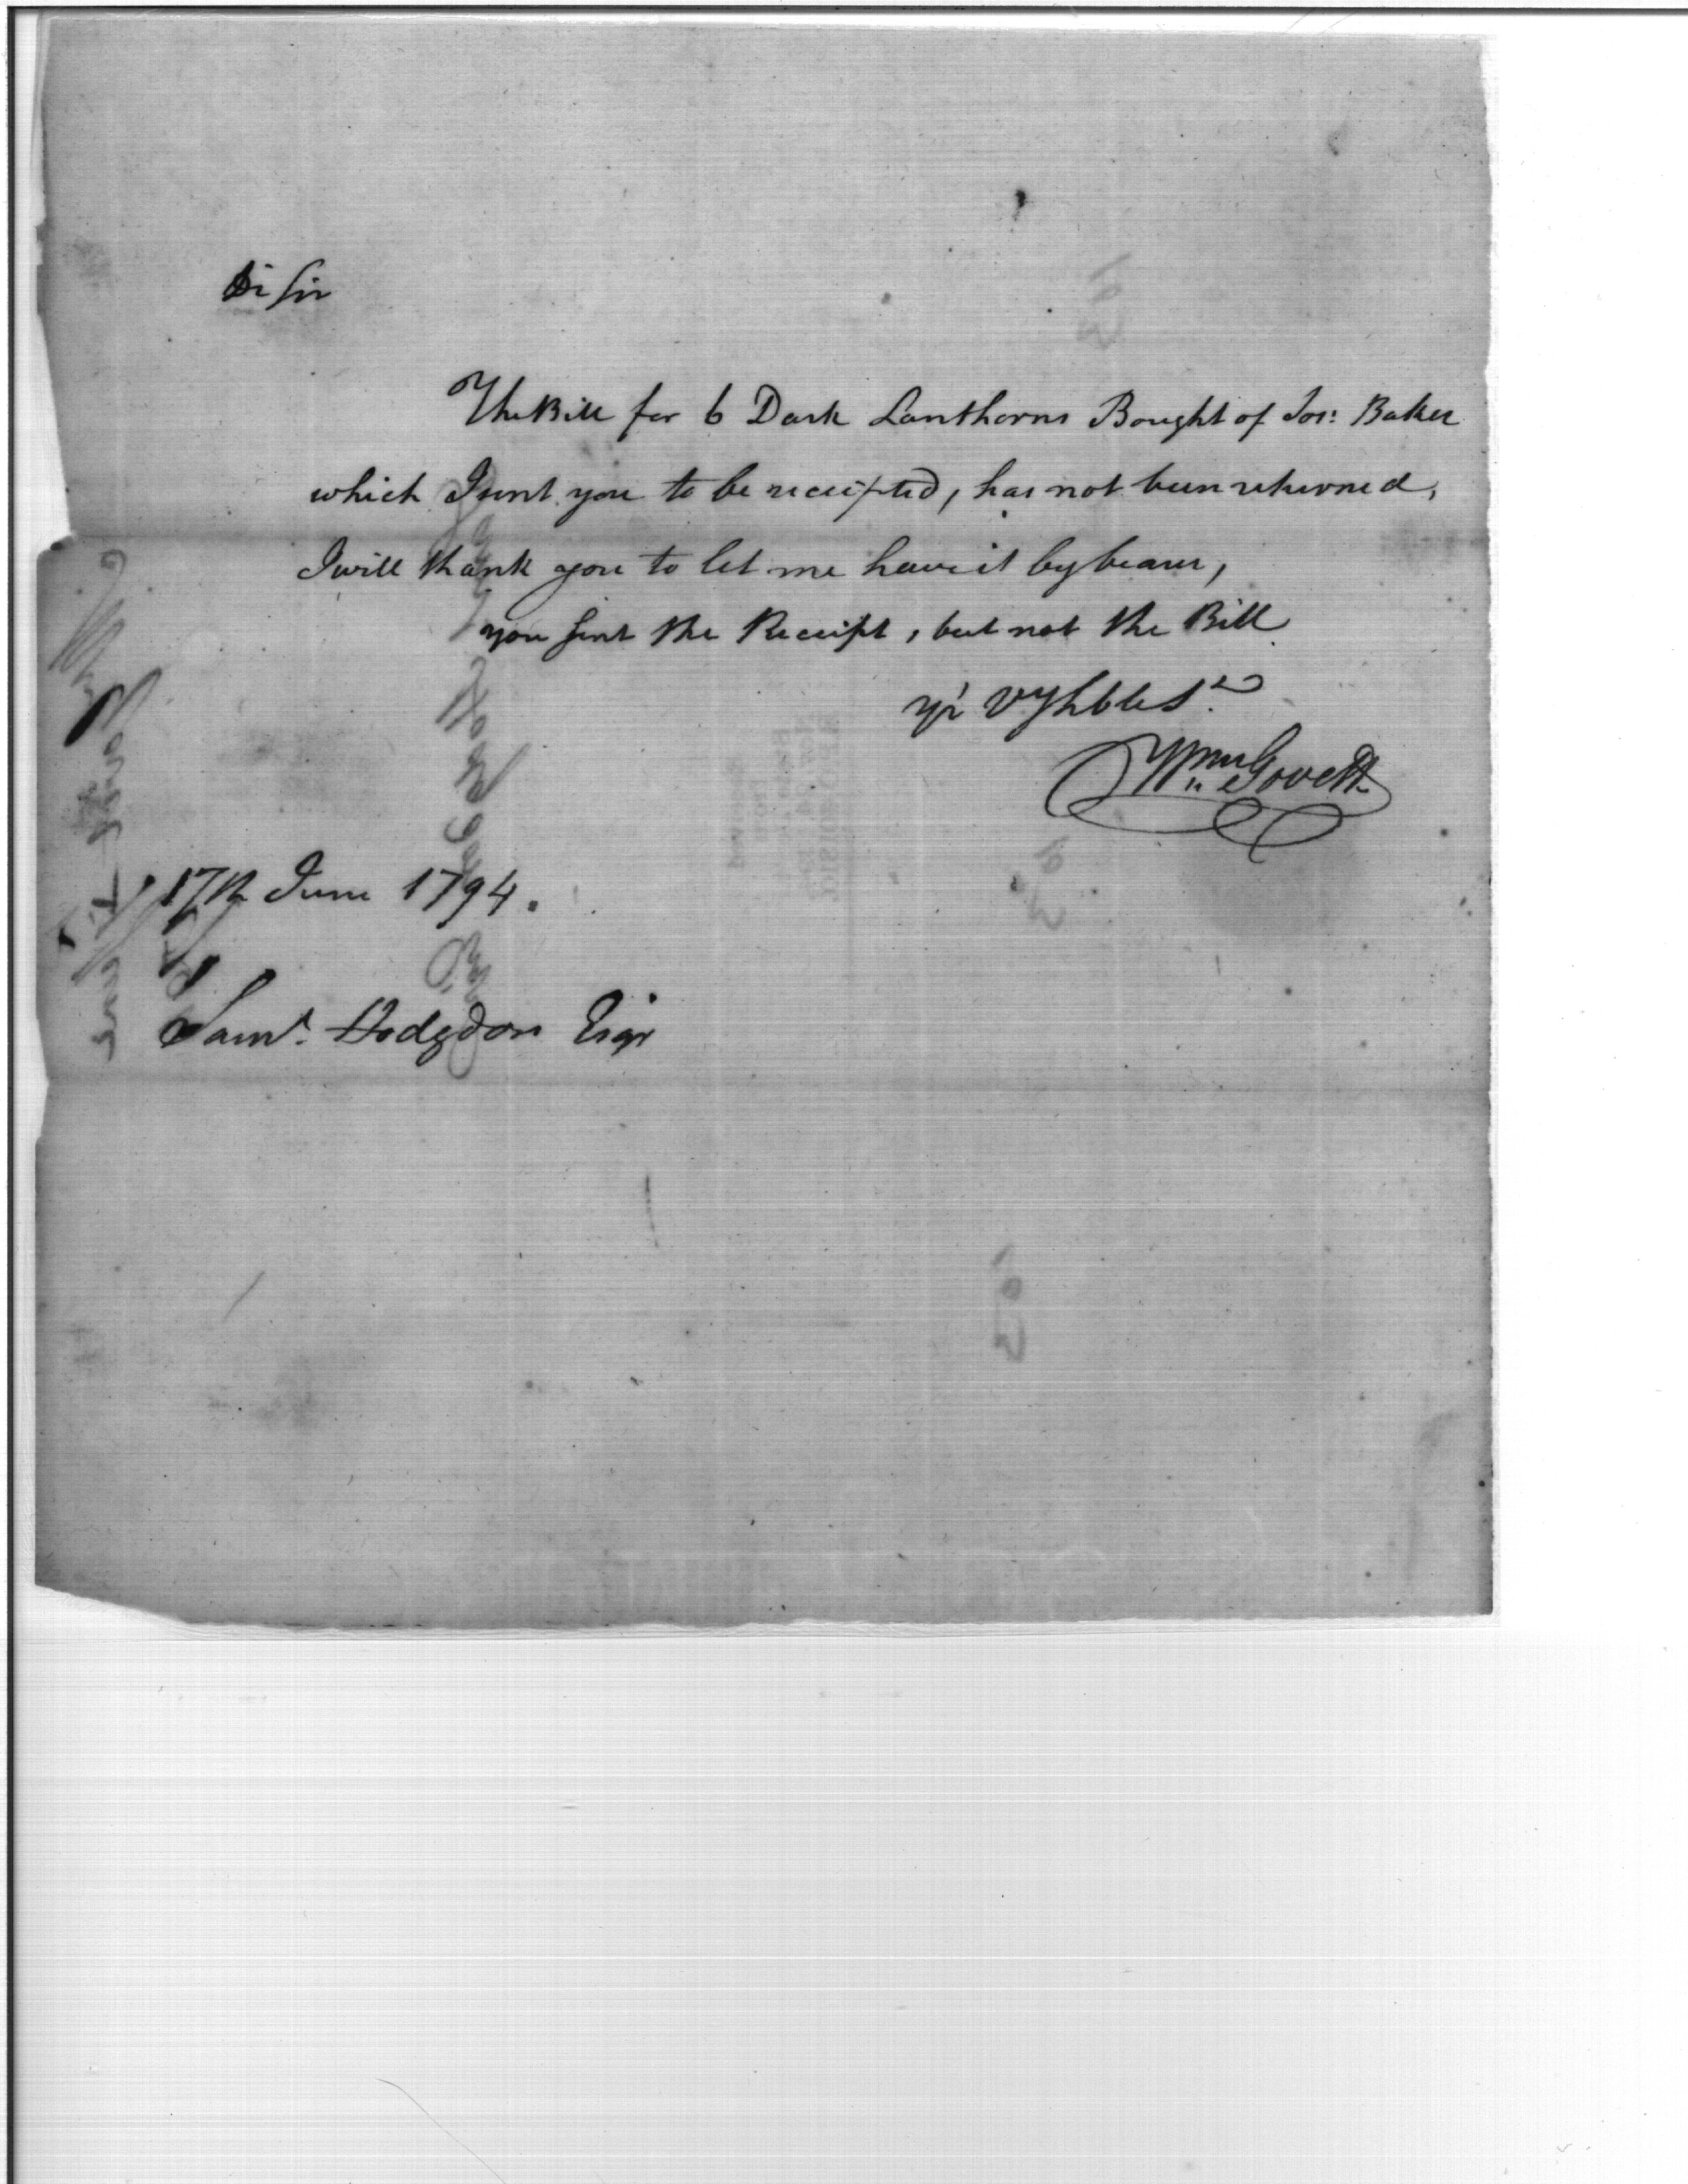 Dr Sir
The Bill for 6 Dark Lanthorns Bought of Jos: Baker
which I sent you to be receipted, has not been returned,
I will thank you to let me have it by bearer,
you sent the Receipt, but not the Bill
yr Vy hble St
Wm Govett
17th June 1794.
Saml. Hodgdon Esqr